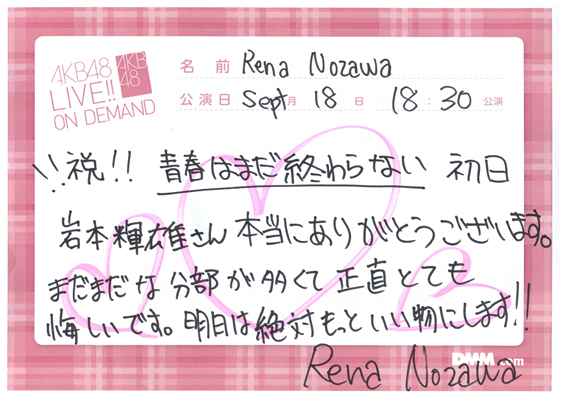 AKB48
LIVE!!
ON DEMAND
AKB
48
名前 Rena Nozawa
公演日 Sept月 18日 18:30公演
祝!! 青春はまだ終わらない 初日
岩本輝雄さん本当にありがとうございます。
まだまだな分部が多くて正直とても
悔しいです。明日は絶対もっといい物にします!!
DMM.com
Rena Nozawa